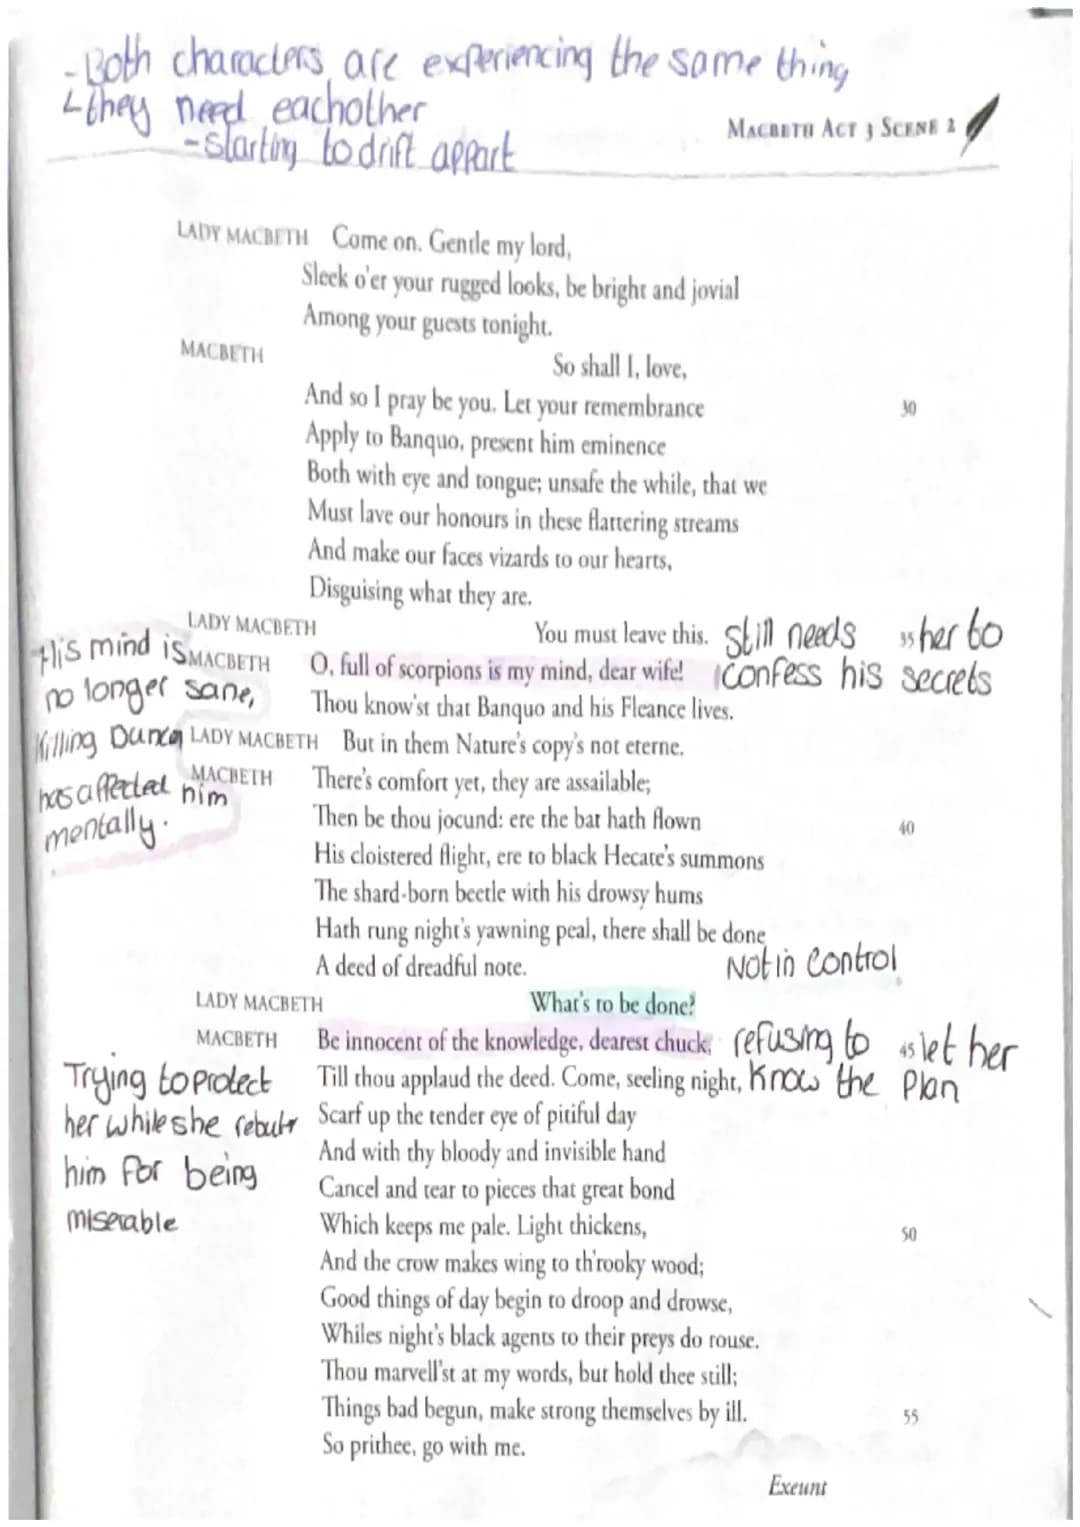 -Both characters are experiencing the same thing
↳they need eachother
-starting to drift appart
MACBETH ACT 3 SCENE 2
LADY MACBETH Come on. Gentle my lord,
Sleek o'er your rugged looks, be bright and jovial
Among your guests tonight.
MACBETH
So shall I, love,
And so I pray be you. Let your remembrance 30
Apply to Banquo, present him eminence
Both with eye and tongue; unsafe the while, that we
Must lave our honours in these flattering streams
And make our faces vizards to our hearts,
Disguising what they are.
LADY MACBETH You must leave this. 35
still needs her to
confess his secrets
MACBETH O, full of scorpions is my mind, dear wife!
Thou know'st that Banquo and his Fleance lives.
His mind is
no longer sane,
Killing Duncan
has affected him
mentally.
LADY MACBETH But in them Nature's copy's not eterne.
MACBETH There's comfort yet, they are assailable;
Then be thou jocund: ere the bat hath flown 40
His cloistered flight, ere to black Hecate's summons
The shard-born beetle with his drowsy hums
Hath rung night's yawning peal, there shall be done
A deed of dreadful note.
Not in control
LADY MACBETH What's to be done?
MACBETH Be innocent of the knowledge, dearest chuck, 45
refusing to let her
Know the Plan
Till thou applaud the deed. Come, seeling night,
Trying to protect
her while she rebuts
him for being
miserable
Scarf up the tender eye of pitiful day
And with thy bloody and invisible hand
Cancel and tear to pieces that great bond
Which keeps me pale. Light thickens, 50
And the crow makes wing to th'rooky wood;
Good things of day begin to droop and drowse,
Whiles night's black agents to their preys do rouse.
Thou marvell'st at my words, but hold thee still;
Things bad begun, make strong themselves by ill. 55
So prithee, go with me.
Exeunt